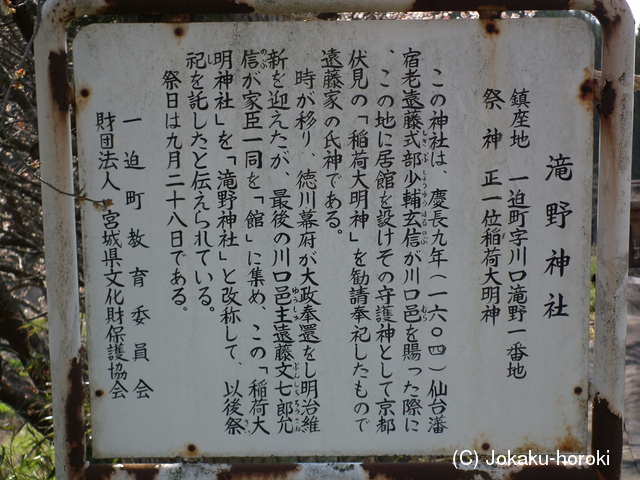 滝野神社
鎮座地　一迫町字川口滝野一番地
祭神　正一位稲荷大明神
この神社は、慶長九年（一六〇四）仙台藩
宿老遠藤式部少輔玄信が川口邑を賜った際に
、この地に居館を設けその守護神として京都
伏見の「稲荷大明神」を勧請奉祀したもので
遠藤家の氏神である。
時が移り、徳川幕府が大政奉還をし明治維
新を迎えたが、最後の川口邑主遠藤文七郎允
信が家臣一同を「館」に集め、この「稲荷大
明神社」を「滝野神社」と改称して、以後祭
祀を託したと伝えられている。
祭日は九月二十八日である。
一迫町教育委員会
財団法人　宮城県文化財保護協会
(C) Jokaku-horoki